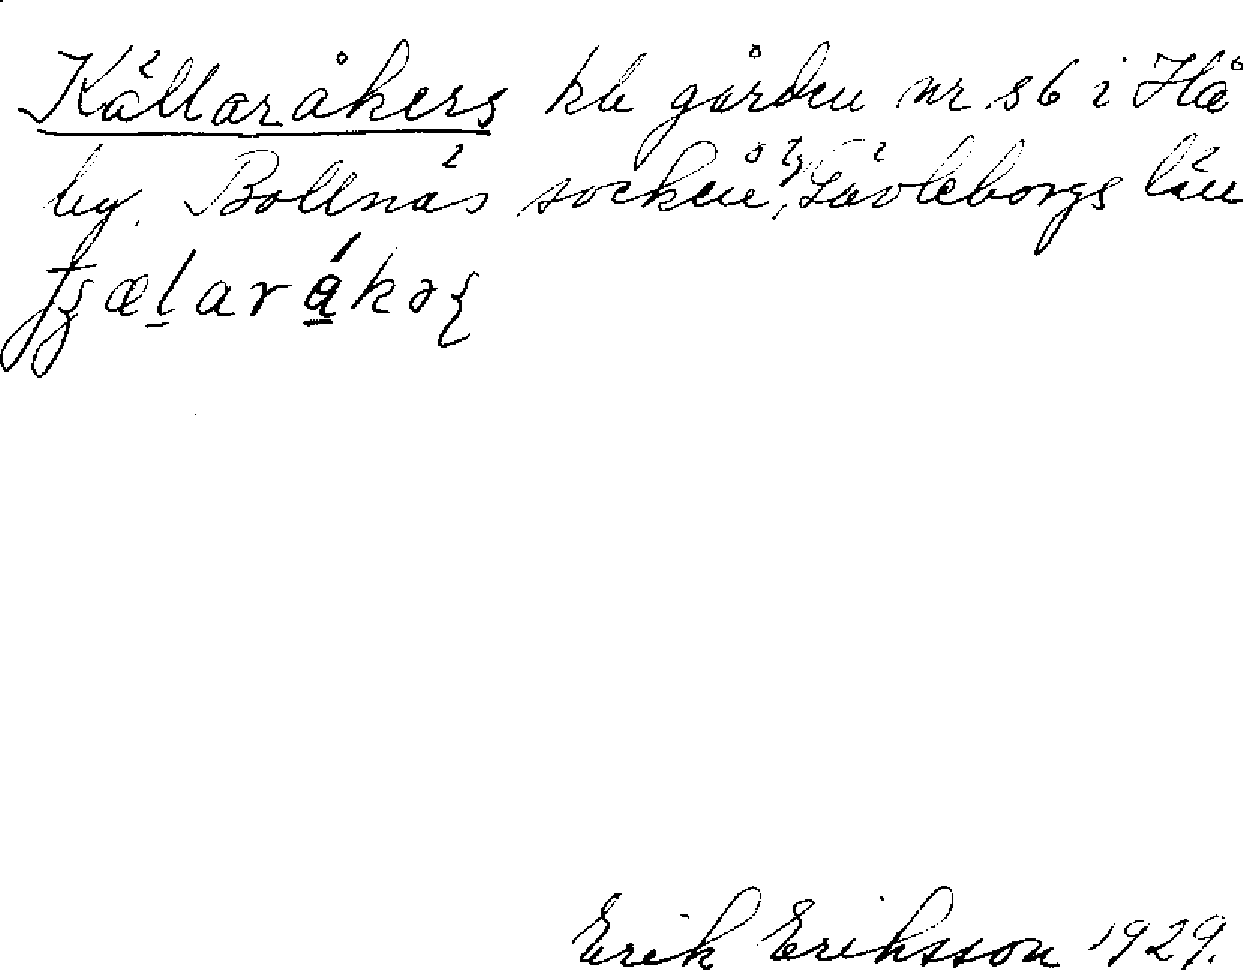 Källaråkers kla gården nr 86 i Hå
by. Bollnäs socken, Gävleborgs län
Erik Eriksson 1929.